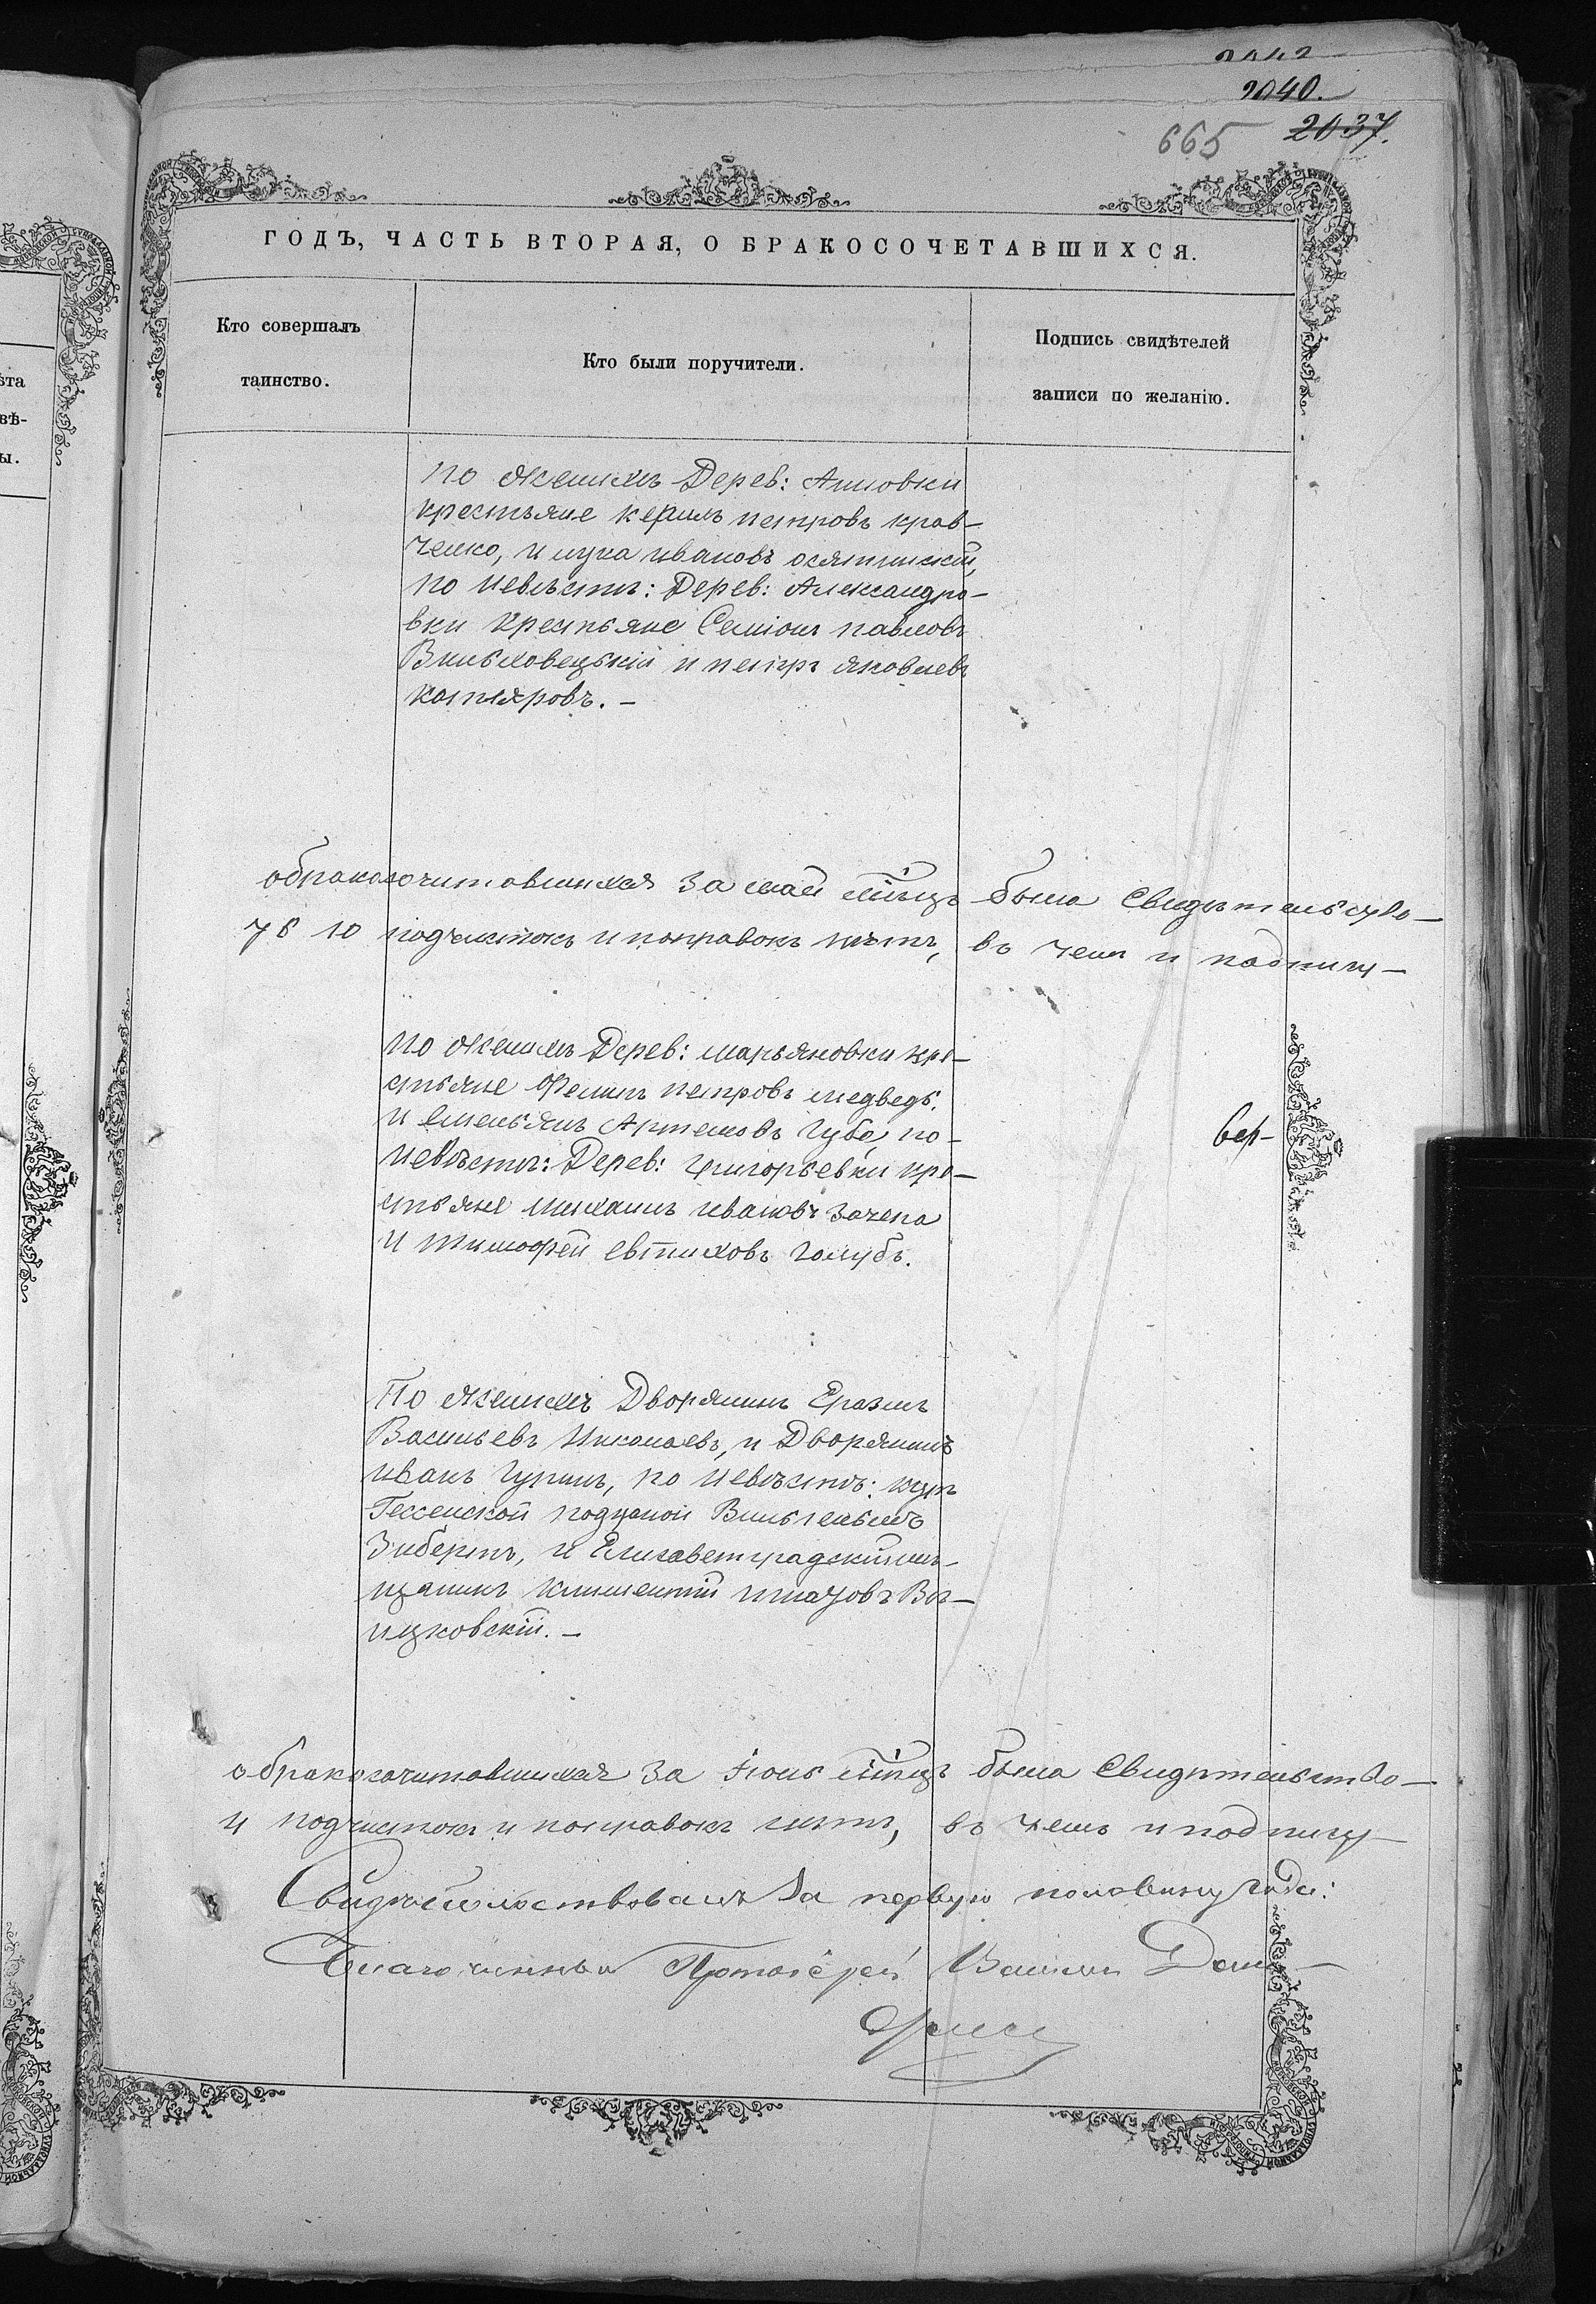 2040.
665 2037.
ГОДЪ, ЧАСТЬ ВТОРАЯ, О БРАКОСОЧЕТАВШИХСЯ.
Кто совершалъ
таинство.
Кто были поручители.
Подпись свидѣтелей
записи по желанію.
ѣта
вѣ-
ы.
по женихѣ Дерев: Анновки
крестьяне петровъ крав-
ченко, и лука ивановъ осятинскій,
по невѣстѣ: Дерев: Александро-
вки крестьяне Семіонъ павловъ
Вильховецькій и петръ яковлевъ
котляровъ. –
обракосочитавшихся за май мѣсць была Свидѣтельство-
76 10 подчистокъ и поправокъ нѣтъ, въ чемъ и подпису-
по женихѣ Дерев: марьяновки кре-
стьяне Филипъ петровъ медведь,
и емельянъ Артемовъ Губа, по-
невѣстѣ: Дерев: григорьевки кре-
стьяне михаилъ ивановъ Зачепа
и тимофей евтиховъ Голубъ.
вер-
По женихѣ Дворянинъ Еразмъ
Васильевъ Николаевъ, и Дворянинъ
иванъ Гуринъ, по невѣстѣ:
Гессенской подданой Вильгельмъ
Зибертъ, и Елисаветградскій мѣ-
щанинъ климентій игнатовъ Во-
ицковскій. –
обракосочитавшихся за іюнь мѣсць была Свидѣтельство-
4 подчистокъ и поправокъ нѣтъ, въ чемъ и подпису-
Свидѣтельствовалъ за первую половину года:
Благочинный Протоіерей